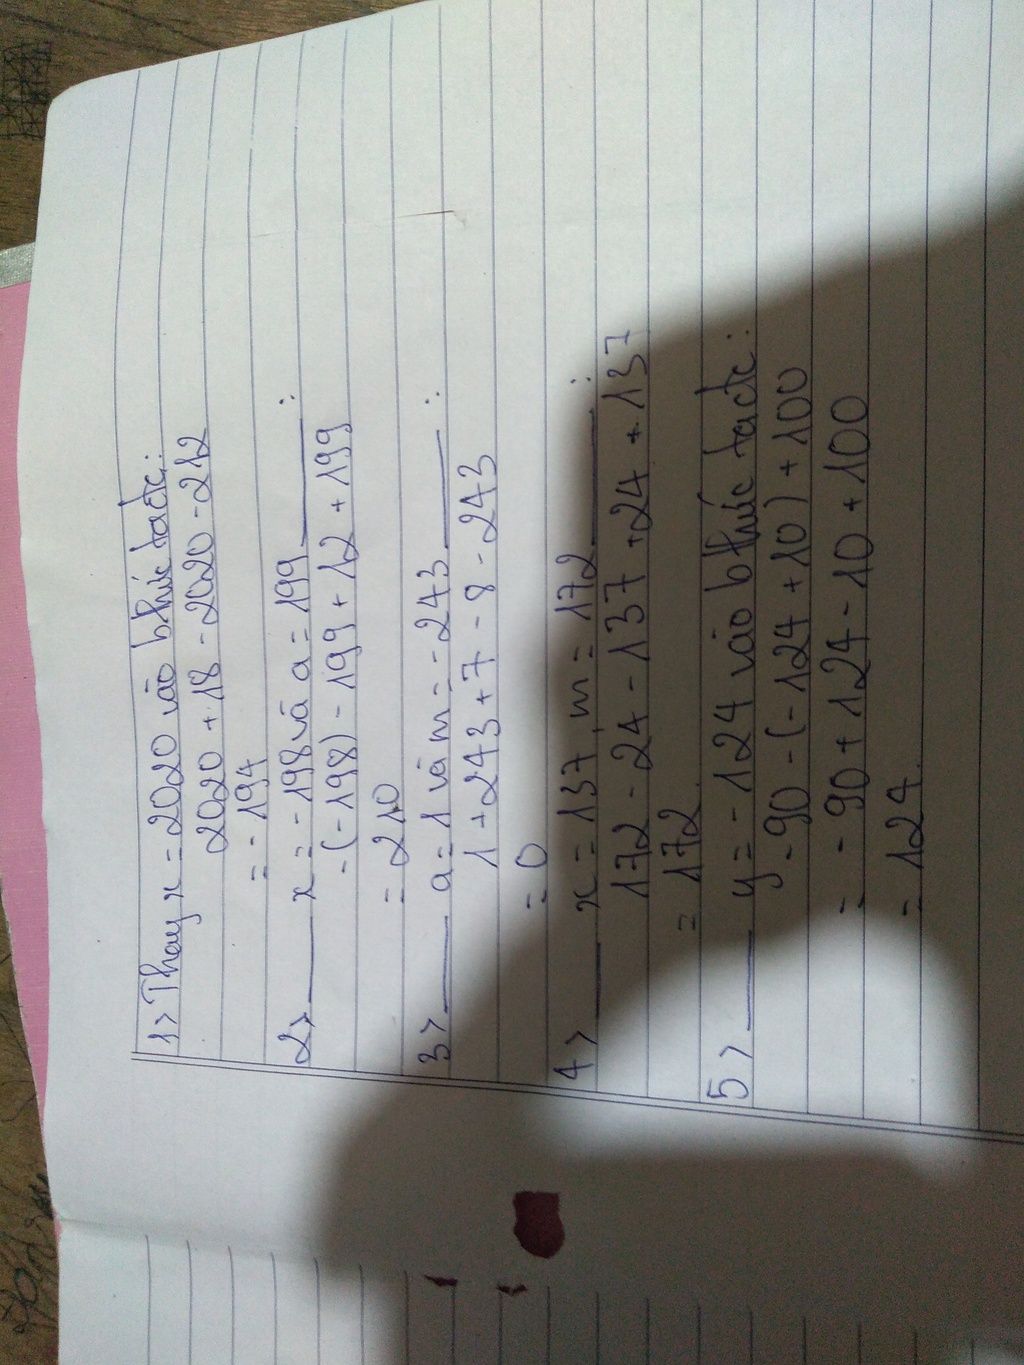 1> Thay x = 2020 vào bthức tađc:
2020 + 18 - 2020 - 212
= - 194
2> ____ x = - 198 và a = 199 ____ :
- (- 198) - 199 + 12 + 199
= 210
3> ____ a = 1 và m = - 243 ____ :
1 + 243 + 7 - 8 - 243
= 0
4> ____ x = 137, m = 172 ____ :
172 - 24 - 137 + 24 + 137
= 172
5> ____ y = - 124 vào bthức tađc:
y - 90 - (- 124 + 10) + 100
= - 90 + 124 - 10 + 100
= 124.